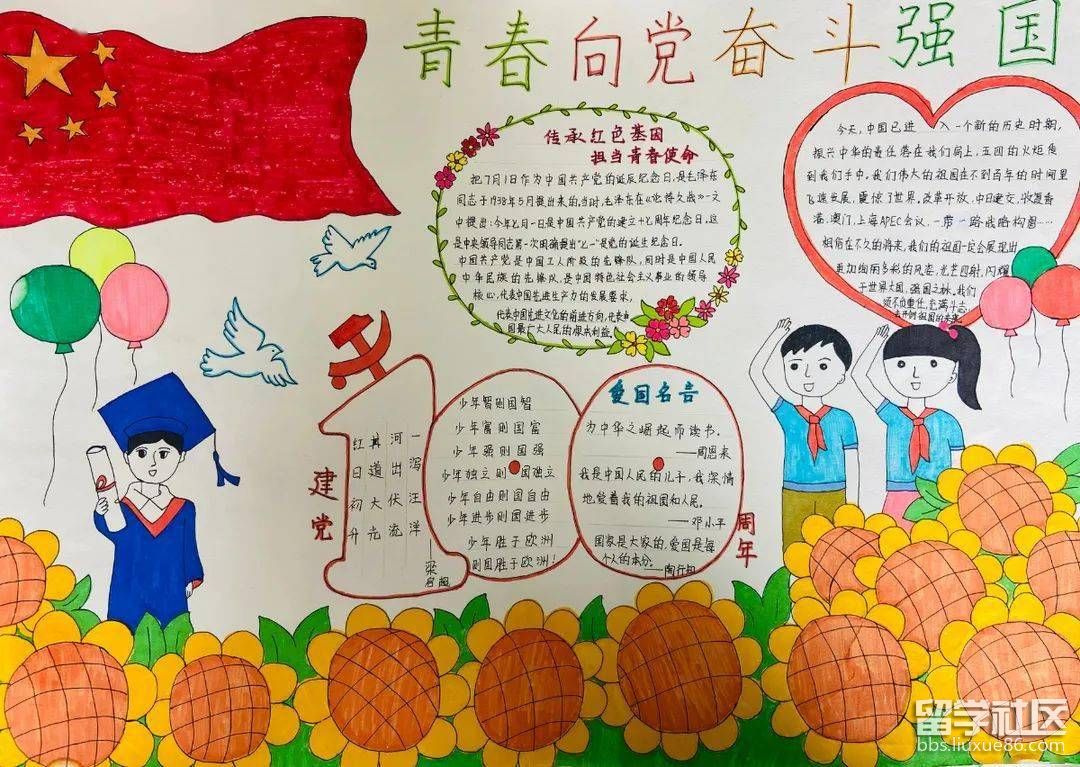 青春向党奋斗强国
传承红色基因
担当青春使命
把7月1日作为中国共产党的诞辰纪念日,是毛泽东
同志于1938年5月提出来的,当时,毛泽东在《论持久战》一文
中提出:今年七月一日是中国共产党的建立十七周年纪念日,这
是中央领导同志第一次明确提出"七一"是党的诞生纪念日。
中国共产党是中国工人阶级的先锋队,同时是中国人民
中华民族的先锋队,是中国特色社会主义事业的领导
核心,代表中国先进生产力的发展要求,
代表中国先进文化的前进方向,代表
国最广大人民的根本利益。
今天,中国已进入一个新的历史时期,
振兴中华的责任落在我们肩上,五四的火炬传
到我们手中,我们伟大的祖国在不到百年的时间里
飞速发展,震惊了世界。改革开放,中日建交,收复香
港,澳门,上海APEC会议,一带一路战略构图……
相信在不久的将来,我们的祖国一定会展现出
更加绚丽多彩的风姿,光芒四射,闪耀
于世界大国,强国之林,我们
须不负重任,充满斗志,
去开创祖国的未来
建党
红日初升
其道大光
河出伏流
一泻汪洋
——梁启超
少年智则国智
少年富则国富
少年强则国强
少年独立则国独立
少年自由则国自由
少年进步则国进步
少年胜于欧洲
则国胜于欧洲!
爱国名言
为中华之崛起而读书。
——周恩来
我是中国人民的儿子,我深情
地爱着我的祖国和人民。
——邓小平
国家是大家的,爱国是每
个人的本分。
——陶行知
周年
留学社区
bbs.liuxue86.com